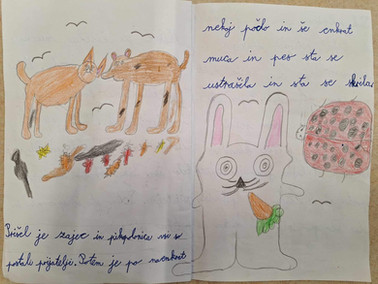 Prišel je zajec in pikapolonica vsi so
postali prijatelji. Potem je po naenkrat
nekaj počlo in še enkrat
muca in pes sta se
ustrašila in sta se skrila